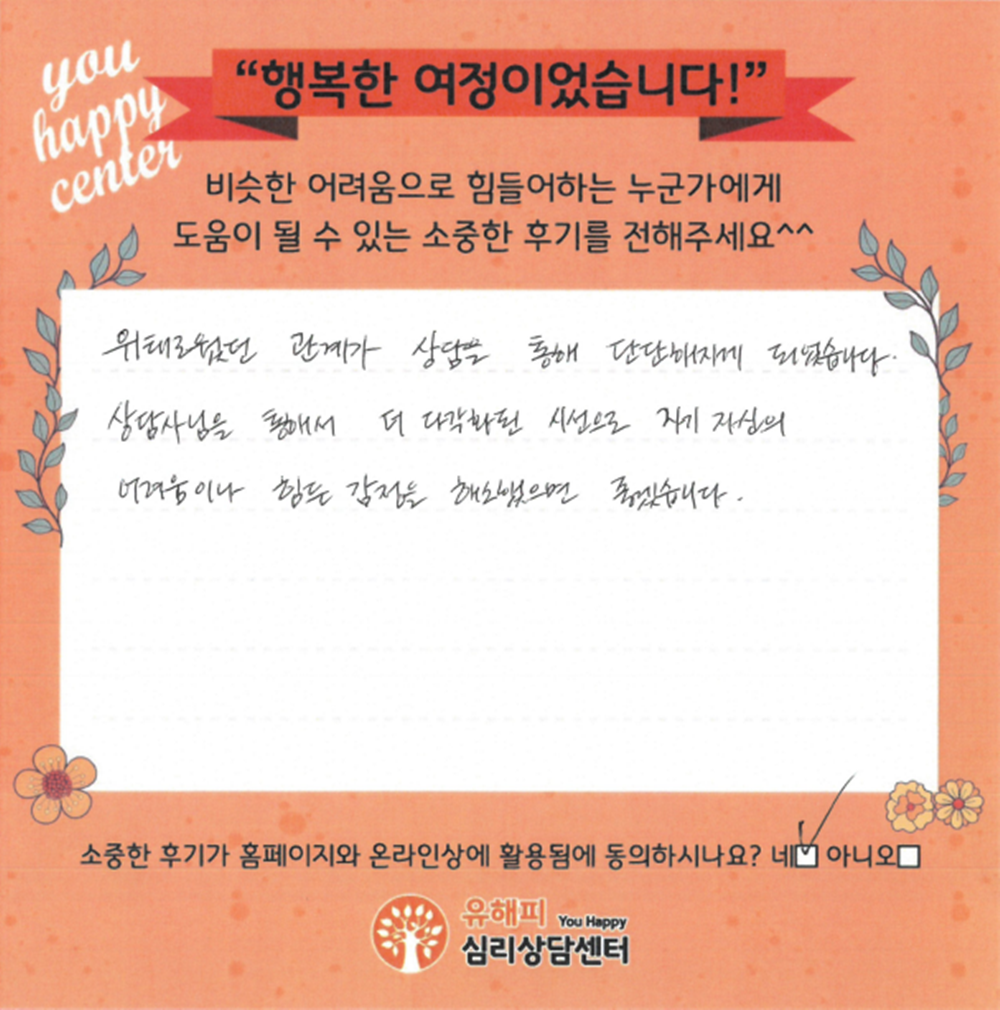 you
happy
center
“행복한 여정이었습니다!”
비슷한 어려움으로 힘들어하는 누군가에게
도움이 될 수 있는 소중한 후기를 전해주세요^^
위태로웠던 관계가 상담을 통해 단단해지게 되었습니다.
상담사님을 통해서 더 다각화된 시선으로 자기 자신의
어려움이나 힘든 감정을 해소했으면 좋겠습니다.
소중한 후기가 홈페이지와 온라인상에 활용됨에 동의하시나요? 네 아니오
유해피 You Happy
심리상담센터